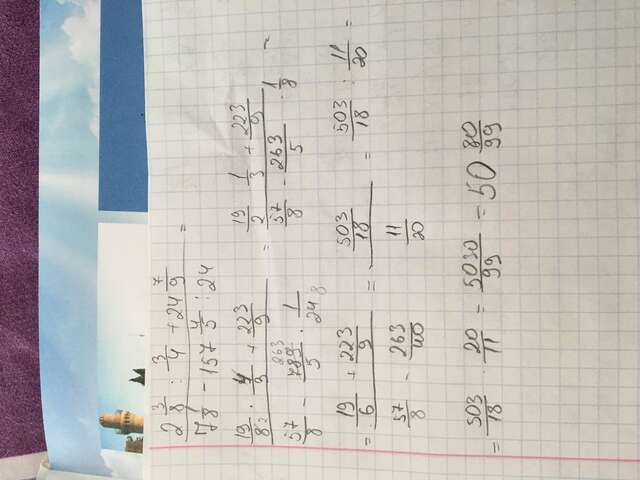 (2 3/8 : 3/4 + 24 7/9) / (7 1/8 - 157 4/5 : 24) =
(19/8 2 · 4/3 + 223/9) / (57/8 - 789 263/5 · 1/24 8) = (19/2 1/3 + 223/9) / (57/8 - 263/5 · 1/8) =
= (19/6 + 223/9) / (57/8 - 263/40) = (503/18) / (11/20) = 503/18 : 11/20 =
= 503/18 · 20/11 = 5030/99 = 50 80/99